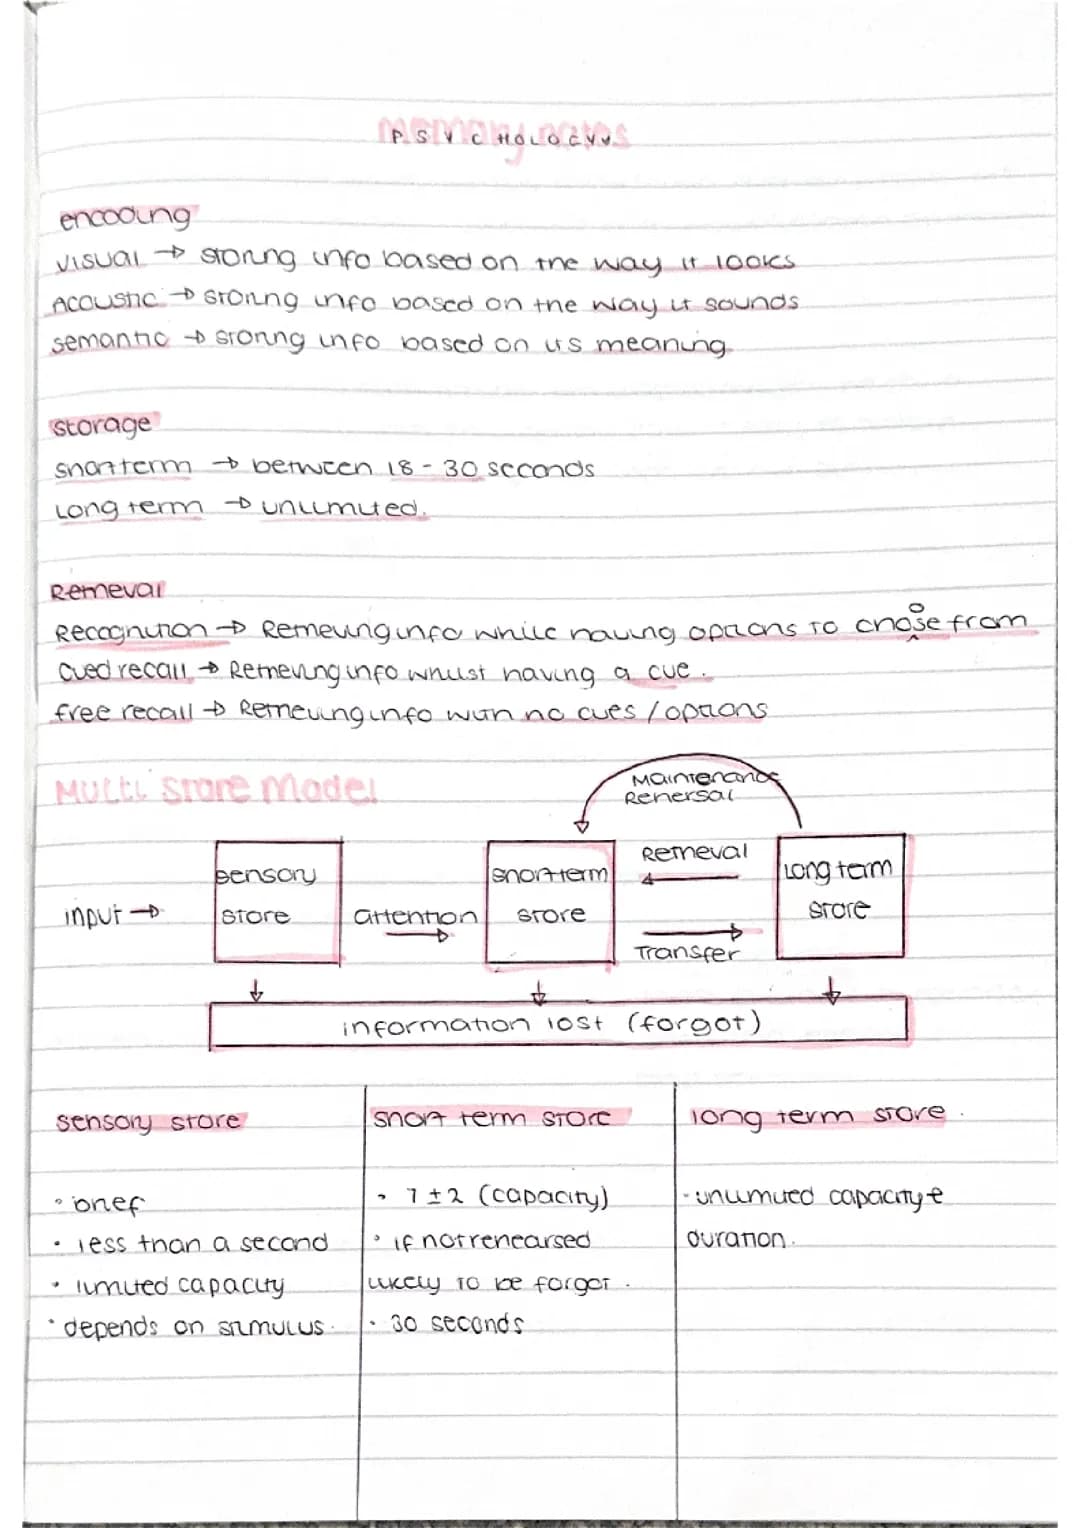 memory notes
PSYCHOLOGY
encoding
visual → storing info based on the way it looks
Acoustic → storing info based on the way it sounds
semantic → storing info based on its meaning
storage
short term → between 18 - 30 seconds
Long term → unlimited.
Retrieval
Recognition → Retrieving info while having options to choose from
Cued recall → Retrieving info whilst having a cue.
free recall → Retrieving info with no cues / options
Multi Store Model
Maintenance
Rehersal
input →
sensory store
attention
short term store
Retrieval
Transfer
Long term store
information lost (forgot)
sensory store
• brief
• less than a second
• limited capacity
• depends on stimulus.
short term store
• 7 ± 2 (capacity)
• if not rehearsed
likely to be forgot.
• 30 seconds
long term store.
- unlimited capacity &
duration.